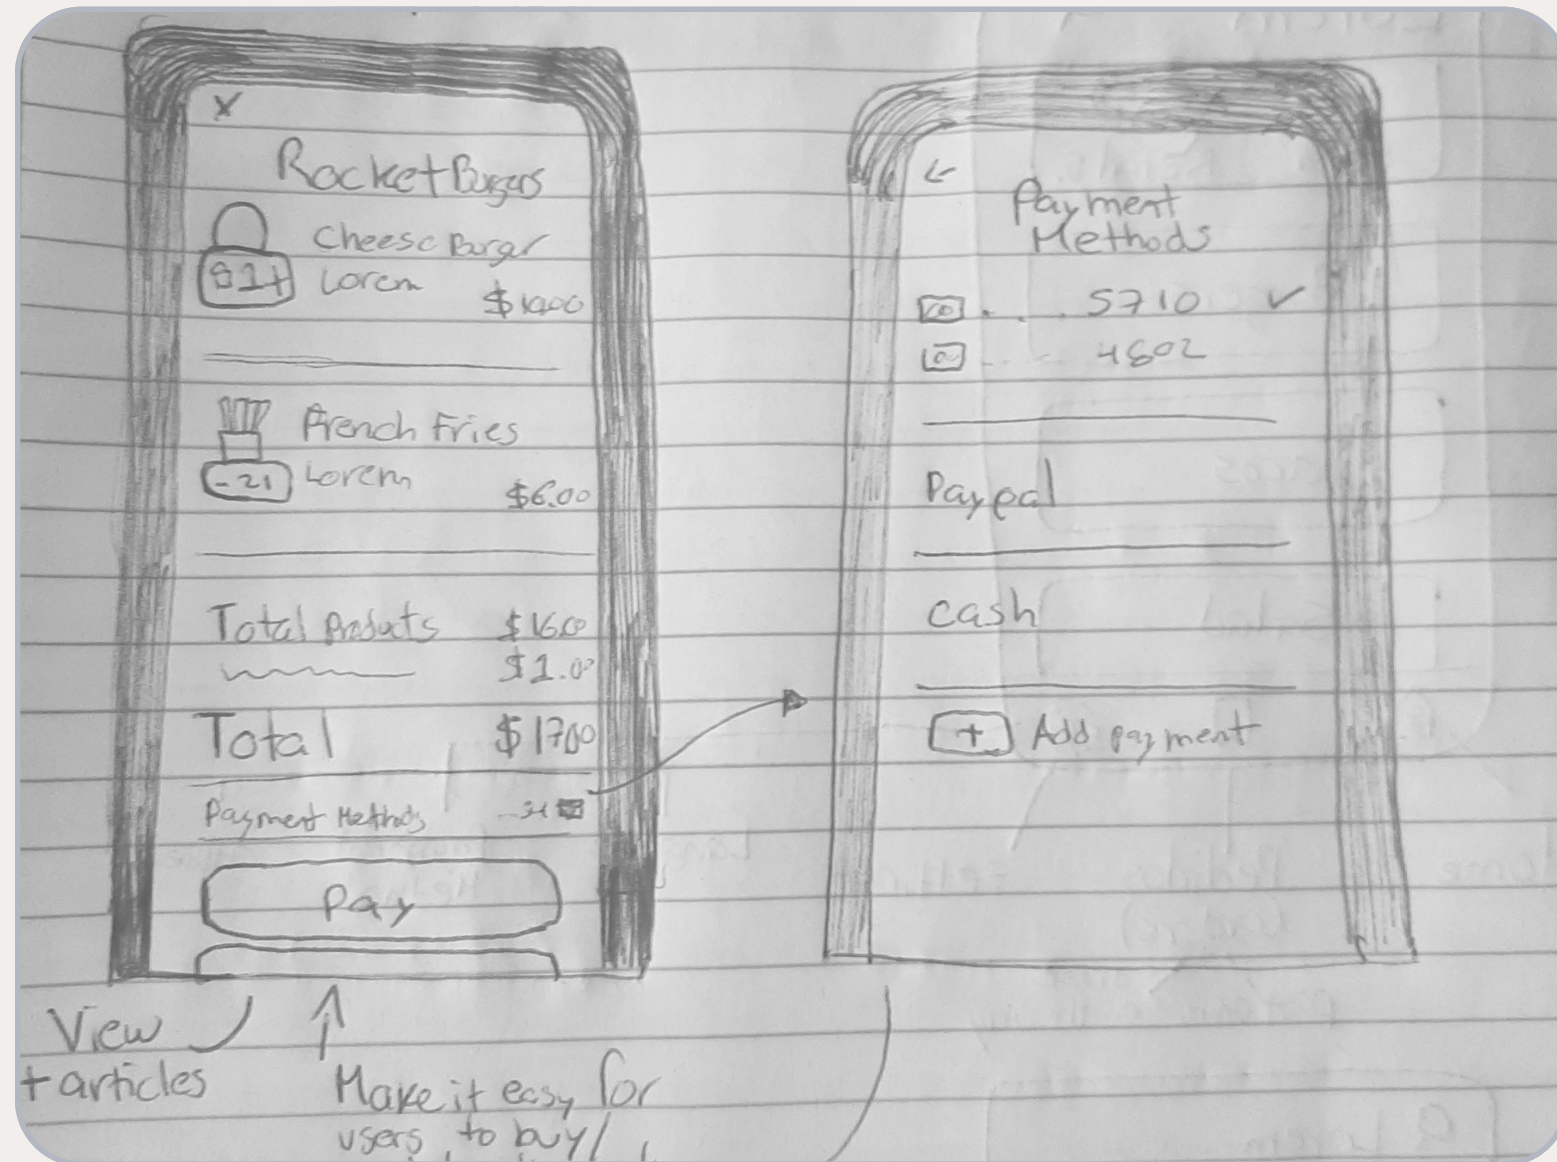 X
Rocket Burgers
Cheese Burger
Lorem
$10.00
French Fries
Lorem
$6.00
Total Products $16.00
$1.00
Total $17.00
Payment Methods
Pay
View
+ articles
Make it easy for
users to buy/
←
Payment
Methods
.... 5710 ✓
.... 4802
Paypal
cash
+ Add payment